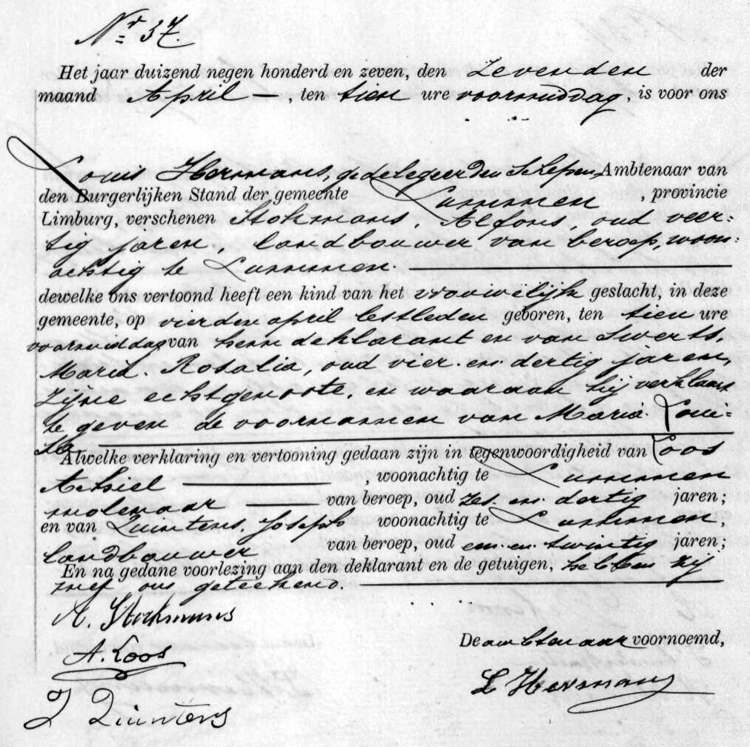 Nr 37.
Het jaar duizend negen honderd en zeven, den zevenden der
maand April —, ten tien ure voormiddag, is voor ons
Louis Hermans, gedelegeerden Schepen, Ambtenaar van
den Burgerlijken Stand der gemeente Lummen, provincie
Limburg, verschenen Stokmans, Alfons, oud veer-
tig jaren, landbouwer van beroep, woon-
achtig te Lummen.
dewelke ons vertoond heeft een kind van het vrouwelijk geslacht, in deze
gemeente, op vierden april lestleden geboren, ten tien ure
voormiddag van hem deklarant en van Swerts,
Maria Rosalia, oud vier en dertig jaren,
zijne echtgenoote, en waaraan hij verklaart
te geven de voornamen van Maria Loui-
sa
Alwelke verklaring en vertooning gedaan zijn in tegenwoordigheid van Loos
Achiel —, woonachtig te Lummen
molenaar — van beroep, oud zes en dertig jaren;
en van Quintens, Joseph woonachtig te Lummen,
landbouwer van beroep, oud een en twintig jaren;
En na gedane voorlezing aan den deklarant en de getuigen, hebben zij
met ons geteekend.
A. Stokmans
A. Loos
J Quintens
De ambtenaar voornoemd,
L Hermans